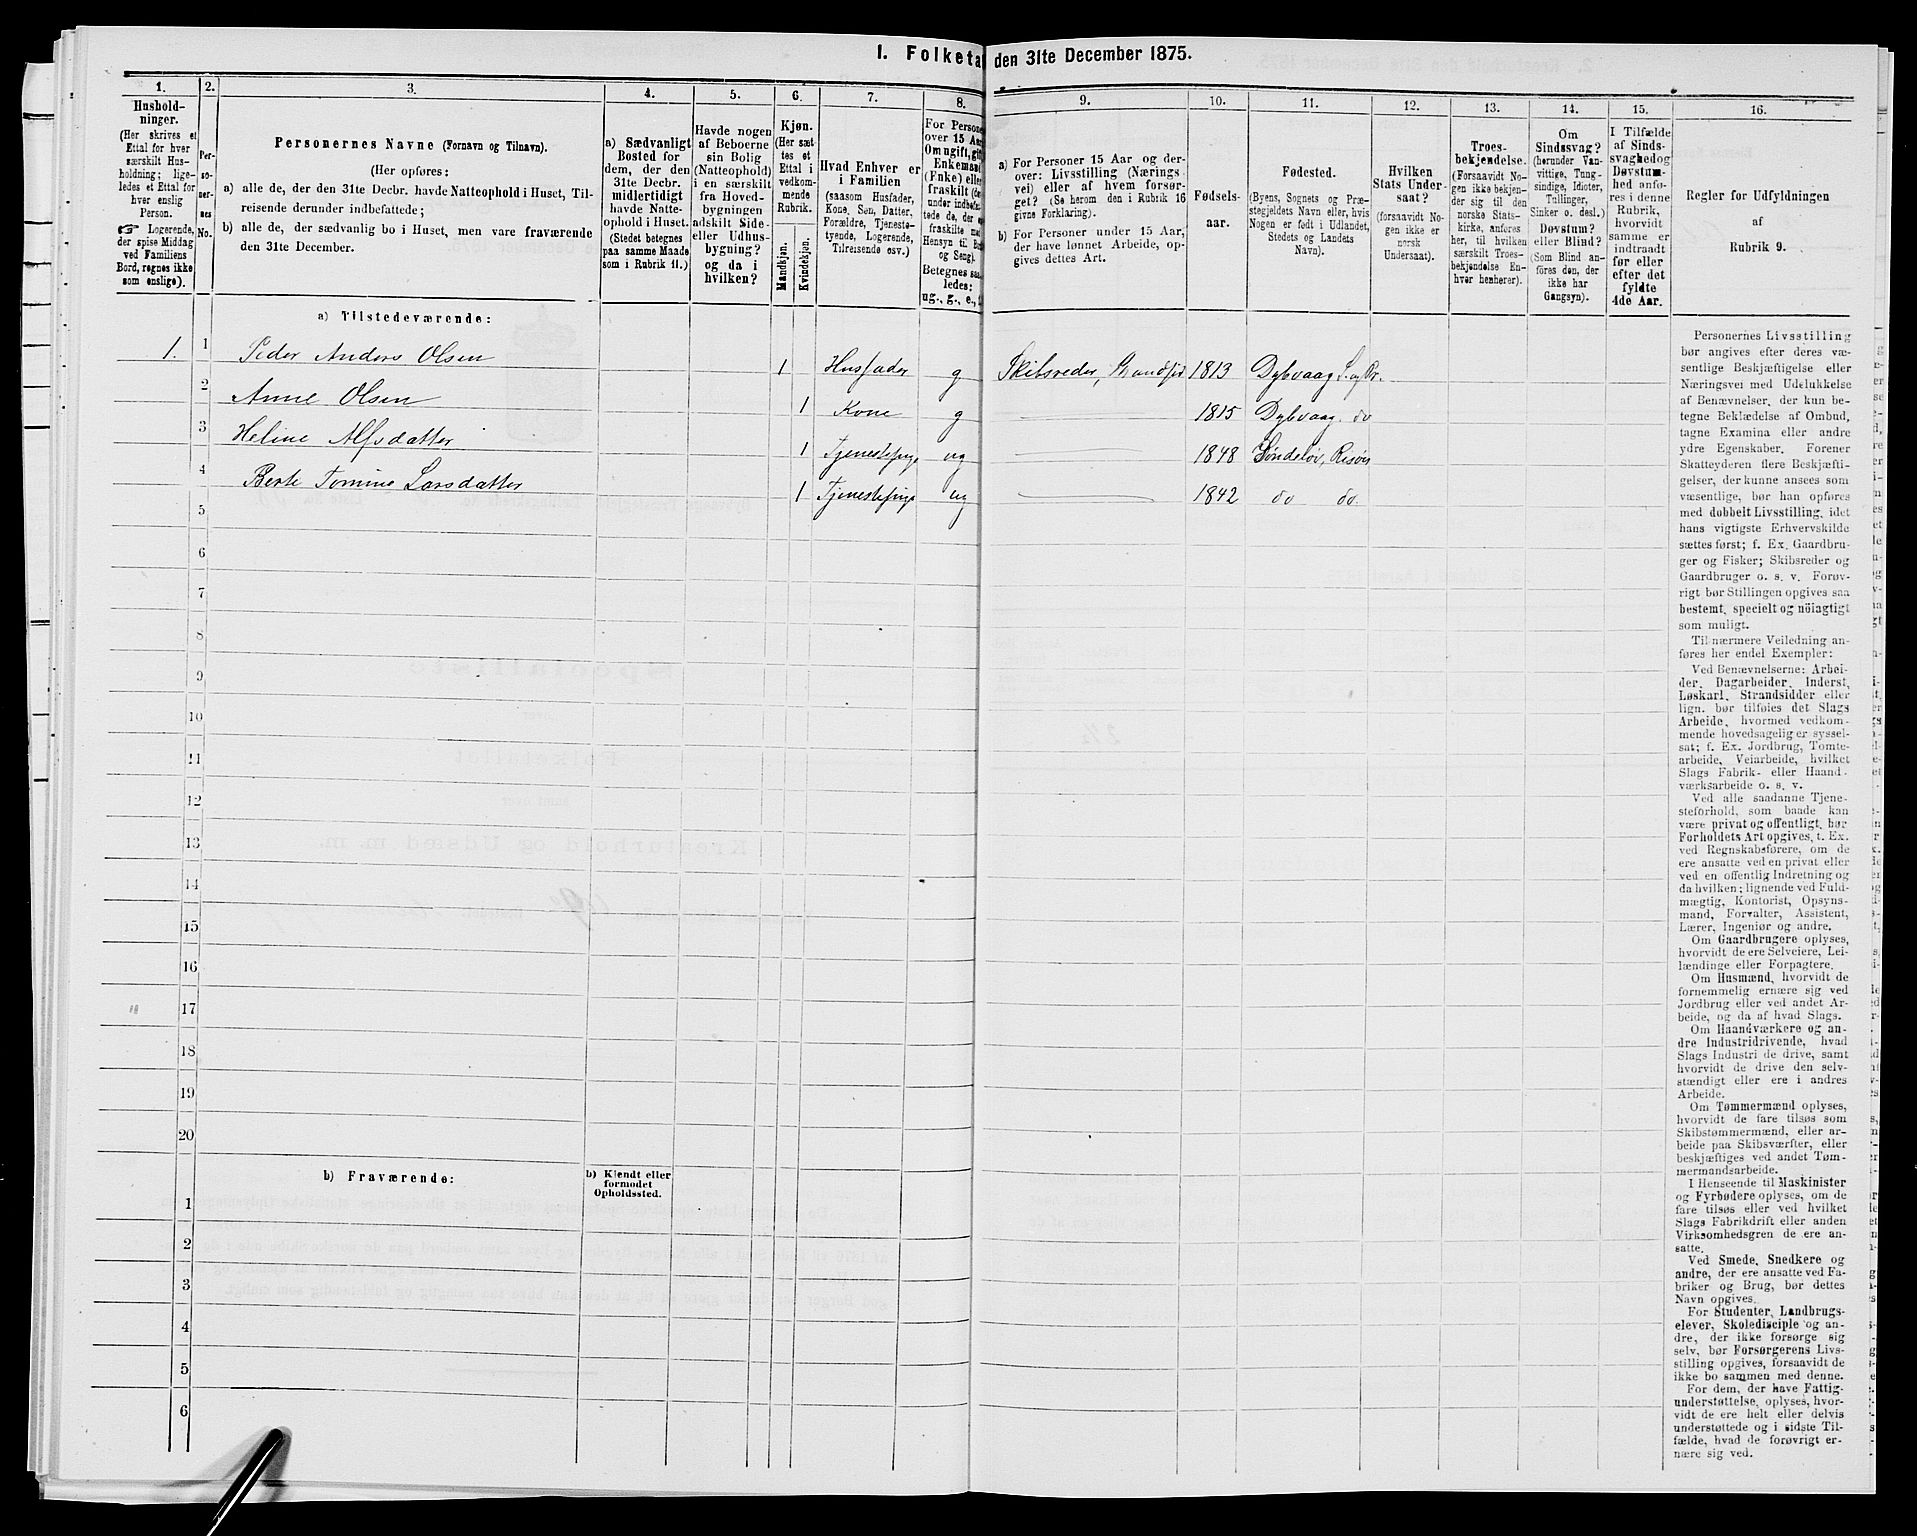 1. Folketa den 31te December 1875.
1. 2. 3. 4. 5. 6. 7. 8. 9. 10. 11. 12. 13. 14. 15. 16.
Hushold-
ninger.
(Her skrives et
Ettal for hver
særskilt Hus-
holdning; lige-
ledes et Ettal for
hver enslig
Person.
Logerende,
der spise Middag
ved Familiens
Bord, regnes ikke
som enslige).
Per-
so-
ner-
nes
No.
Personernes Navne (Fornavn og Tilnavn).
(Her opføres:
a) alle de, der den 31te Decbr. havde Natteophold i Huset, Til-
reisende derunder indbefattede;
b) alle de, der sædvanlig bo i Huset, men vare fraværende
den 31te December.
a) Sædvanligt
Bosted for
dem, der den
31te Decbr.
midlertidigt
havde Natte-
ophold i Huset.
(Stedet betegnes
paa samme Maade
som i Rubrik 11.)
Havde nogen
af Beboerne
sin Bolig
(Natteophold)
i en særskilt
fra Hoved-
bygningen
adskilt Side-
eller Udhus-
bygning?
og da i
hvilken?
Kjøn.
(Her sæt-
tes et
Ettal i
vedkom-
mende
Rubrik.
Mandkjøn.
Kvindekjøn.
Hvad Enhver er
i Familien
(saasom Husfader,
Kone, Søn, Datter,
Forældre, Tjenestø-
tyende, Logerende,
Tilreisende osv.)
For Persone
over 15 Aar
Om ugift, gif
Enkemand
(Enke) eller
fraskilt (de
under indbefat-
tede de, der
fraskilte me
Hensyn til Bo
og Seng).
Betegnes saa
ledes:
ug., g., e.,
a) For Personer 15 Aar og der-
over: Livsstilling (Nærings
vei) eller af hvem forsør-
get? (Se herom den i Rubrik 16
givne Forklaring).
b) For Personer under 15 Aar,
der have lønnet Arbeide, op-
gives dettes Art.
Fødsels-
aar.
Fødested.
(Byens, Sognets og Præ-
stegjeldets Navn eller, hvis
Nogen er født i Udlandet,
Stedets og Landets
Navn).
Hvilken
Stats Under-
saat?
(forsaavidt No-
gen ikke er
norsk
Undersaat).
Troes-
bekjendelse.
(Forsaavidt No-
gen ikke bekjen-
der sig til den
norske Stats-
kirke, anføres
her, til hvilken
særskilt Troes-
bekjendelse En-
hver henhører).
Om
Sindssvag?
(herunder Van-
vittige, Tung-
sindige, Idioter,
Tullinger,
Sinker o. desl.)
Døvstum?
eller Blind?
(Som Blind an-
føres den, der
ikke har
Gangsyn).
I Tilfælde
af Sinds-
svaghed og
Døvstum-
hed anfø-
res i denne
Rubrik,
hvorvidt
samme er
indtraadt
før eller
efter det
fyldte
4de Aar.
Regler for Udfyldningen
af
Rubrik 9.
a) Tilstedeværende:
1. 1 Peder Anders Olsen 1 Husfader g Skibsreder, 1813 Dybvaag S. og Pr.
2 Anne Olsen 1 Kone g 1815 Dybvaag do
3 Heline Alfsdatter 1 Tjenestepige ug 1848 Søndeløv, Risør
4 Berte Tomine Larsdatter 1 Tjenestepige ug 1842 do do.
5
6
7
8
9
10
11
12
13
14
15
16
17
18
19
20
b) Fraværende:
b) Kjendt eller
formodet
Opholdssted.
1
2
3
4
5
6
Personernes Livsstilling
bør angives efter deres væ-
sentlige Beskjæftigelse eller
Næringsvei med Udelukkelse
af Benævnelser, der kun be-
tegne Beklædelse af Ombud,
tagne Examina eller andre
ydre Egenskaber. Forener
Skatteyderen flere Beskjæfti-
gelser, der kunne ansees som
væsentlige, bør han opføres
med dobbelt Livsstilling, idet
hans vigtigste Erhvervskilde
sættes først; f. Ex. Gaardbru-
ger og Fisker; Skibsreder og
Gaardbruger o. s. v. Forøv-
rigt bør Stillingen opgives saa
bestemt, specielt og nöiagtigt
som muligt.
Til nærmere Veiledning an-
føres her endel Exempler:
Ved Benævnelserne: Arbei-
der, Dagarbeider, Inderst,
Løskarl, Strandsidder eller
lign. bør tilføies det Slags
Arbeide, hvormed vedkom-
mende hovedsagelig er syssel-
sat; f. Ex. Jordbrug, Tomte-
arbeide, Veiarbeide, hvilket
Slags Fabrik- eller Haand-
værksarbeide o. s. v.
Ved alle saadanne Tjene-
steforhold, som baade kan
være privat og offentligt, bør
Forholdets Art opgives, t. Ex.
ved Regnskabsførere, om de
ere ansatte ved en privat eller
ved en offentlig Indretning og
da hvilken; lignende ved Fuld-
mægtig, Kontorist, Opsyns-
mand, Forvalter, Assistent,
Lærer, Ingeniør og andre.
Om Gaardbrugere oplyses,
hvorvidt de ere Selveiere, Lei-
lændinge eller Forpagtere.
Om Husmænd, hvorvidt de
fornemmelig ernære sig ved
Jordbrug eller ved andet Ar-
beide, og da af hvad Slags.
Om Haandværkere og an-
dre Industridrivende, hvad
Slags Industri de drive, samt
hvorvidt de drive den selv-
stændigt eller ere i andres
Arbeide.
Om Tømmermænd oplyses,
hvorvidt de fare tilsøs som
Skibstømmermænd, eller ar-
beide paa Skibsværfter, eller
beskjæftiges ved andet Tøm-
mermandsarbeide.
I Henseende til Maskinister
og Fyrbødere oplyses, om de
fare tilsøs eller ved hvilket
Slags Fabrikdrift eller anden
Virksomhedsgren de ere an-
satte.
Ved Smede, Snedkere og
andre, der ere ansatte ved Fa-
briker og Brug, bør dettes
Navn opgives.
For Studenter, Landbrugs-
elever, Skoledisciple og an-
dre, der ikke forsørge sig
selv, bør Forsørgerens Livs-
stilling opgives, forsaavidt de
ikke bo sammen med denne.
For dem, der have Fattig-
understøttelse, oplyses, hvor-
vidt de ere helt eller delvis
understøttede og i sidste Til-
fælde, hvad de forøvrigt er-
nære sig ved.